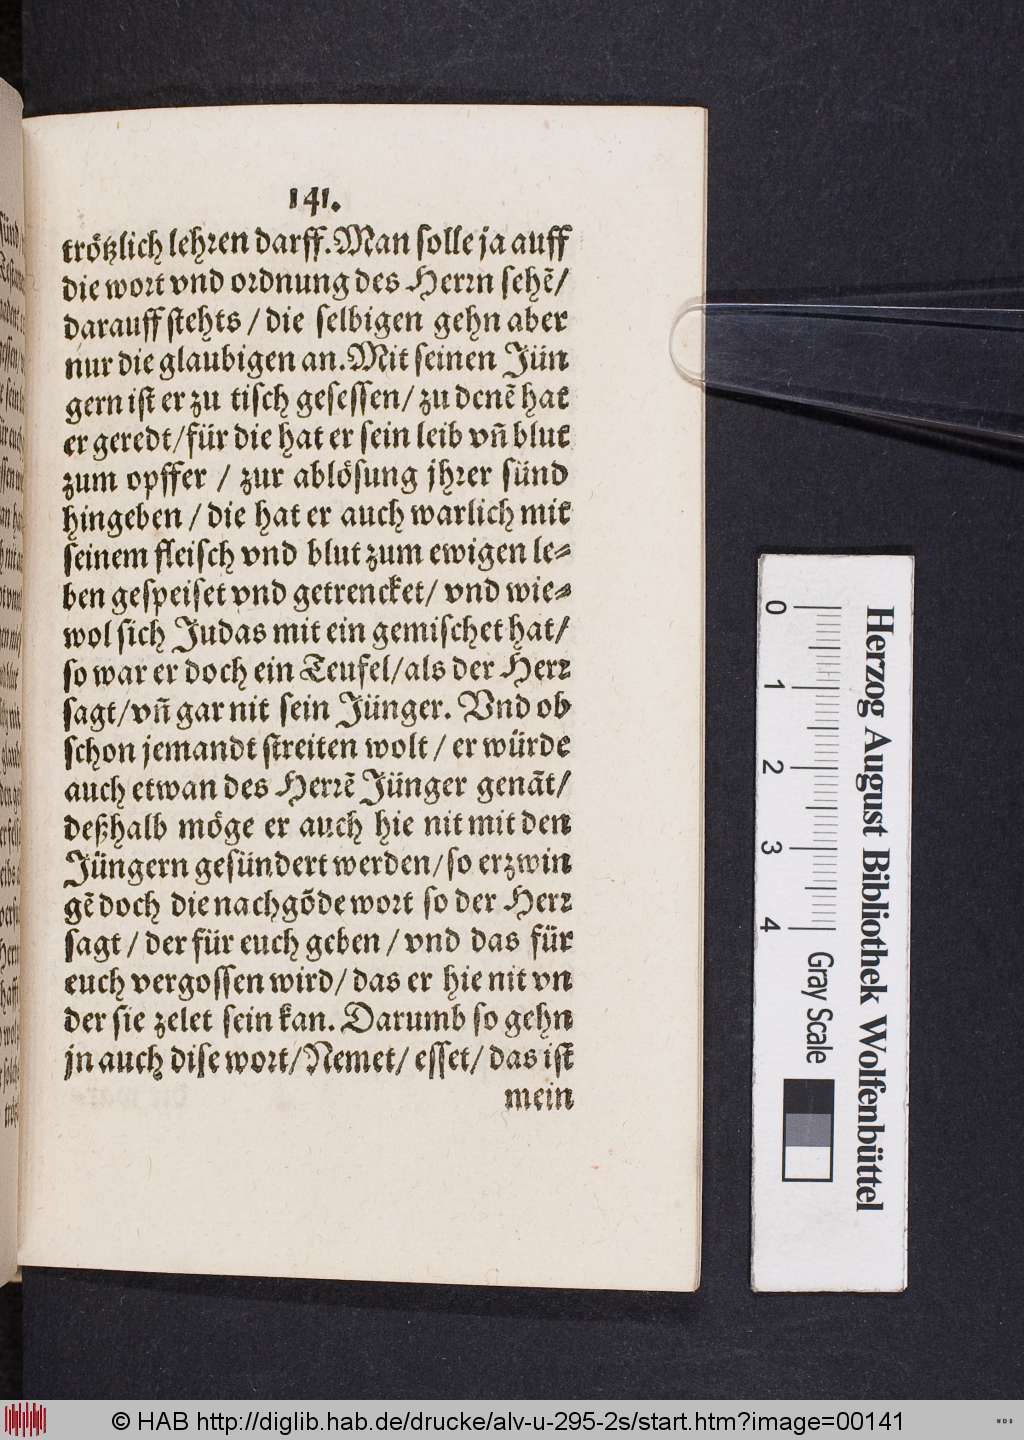 141.
trötzlich lehren darff. Man solle ja auff
die wort vnd ordnung des Herrn sehẽ/
darauff stehts / die selbigen gehn aber
nur die glaubigen an. Mit seinen Jün
gern ist er zu tisch gesessen/ zu denẽ hat
er geredt/ für die hat er sein leib vñ blut
zum opffer / zur ablösung jhrer sünd
hingeben / die hat er auch warlich mit
seinem fleisch vnd blut zum ewigen le=
ben gespeiset vnd getrencket/ vnd wie=
wol sich Judas mit ein gemischet hat/
so war er doch ein Teufel/ als der Herr
sagt/ vñ gar nit sein Jünger. Vnd ob
schon jemandt streiten wolt / er würde
auch etwan des Herrẽ Jünger genãt/
deßhalb möge er auch hie nit mit den
Jüngern gesündert werden/ so erzwin
gẽ doch die nachgõde wort so der Herr
sagt / der für euch geben / vnd das für
euch vergossen wird/ das er hie nit vn
der sie zelet sein kan. Darumb so gehn
jn auch dise wort/ Nemet/ esset/ das ist
mein
0 1 2 3 4
Gray Scale
Herzog August Bibliothek Wolfenbüttel
© HAB http://diglib.hab.de/drucke/alv-u-295-2s/start.htm?image=00141